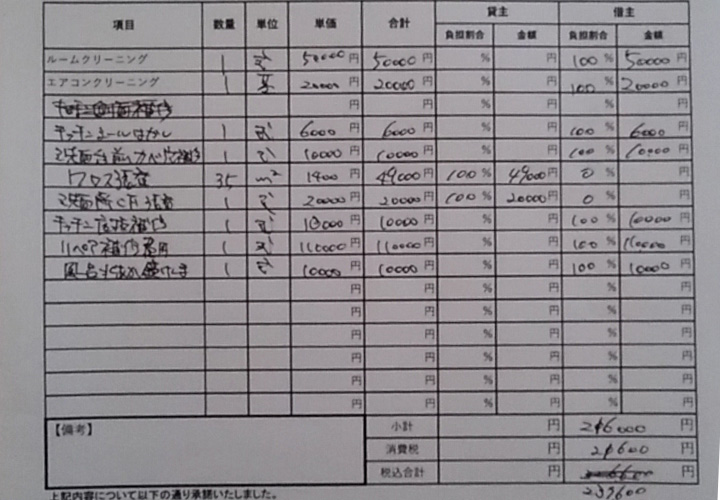 項目 数量 単位 単価 合計 貸主 借主
負担割合 金額 負担割合 金額
ルームクリーニング 1 式 50000円 50000円 % 円 100% 50000円
エアコンクリーニング 1 20000円 20000円 % 円 100% 20000円
円 円 % 円 % 円
キッチンシールはがし 1 式 6000円 6000円 % 円 100% 6000円
1 式 10000円 10000円 % 円 100% 10000円
クロス張替 35 m² 1400円 49000円 100% 49000円 0% 円
洗面所CF張替 1 式 20000円 20000円 100% 20000円 0% 円
キッチン 補修 1 式 10000円 10000円 % 円 100% 10000円
リペア補修費用 1 式 110000円 110000円 % 円 100% 110000円
風呂 1 式 10000円 10000円 % 円 100% 10000円
円 円 % 円 % 円
円 円 % 円 % 円
円 円 % 円 % 円
円 円 % 円 % 円
円 円 % 円 % 円
円 円 % 円 % 円
【備考】 小計 円 216000 円
消費税 円 21600 円
税込合計 円 円
237600
上記内容について以下の通り承諾いたしました。